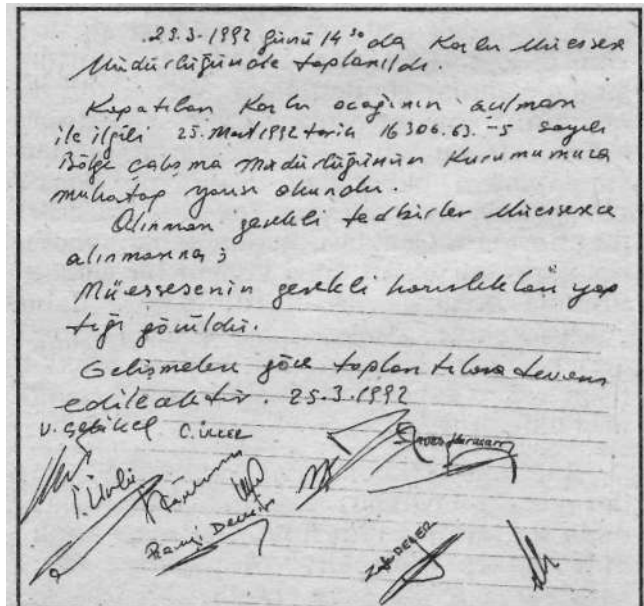 25.3.1992 günü 14 30 da Kozlu Müessese
Müdürlüğünde toplanıldı.
Kapatılan Kozlu ocağının açılması
ile ilgili 25.Mart 1992 tarih 16306.63.-5 sayılı
Bölge Çalışma Müdürlüğünün Kurumumuza
muhatap yazısı okundu.
Alınması gerekli tedbirler Müessesece
alınmasına;
Müessesenin gerekli hazırlıkları yap
tığı görüldü.
Gelişmelere göre toplantılara devam
edilecektir. 25.3.1992
C. ÜLKER
T. Ünlü
Ramiz Demir
Zafer DEĞER